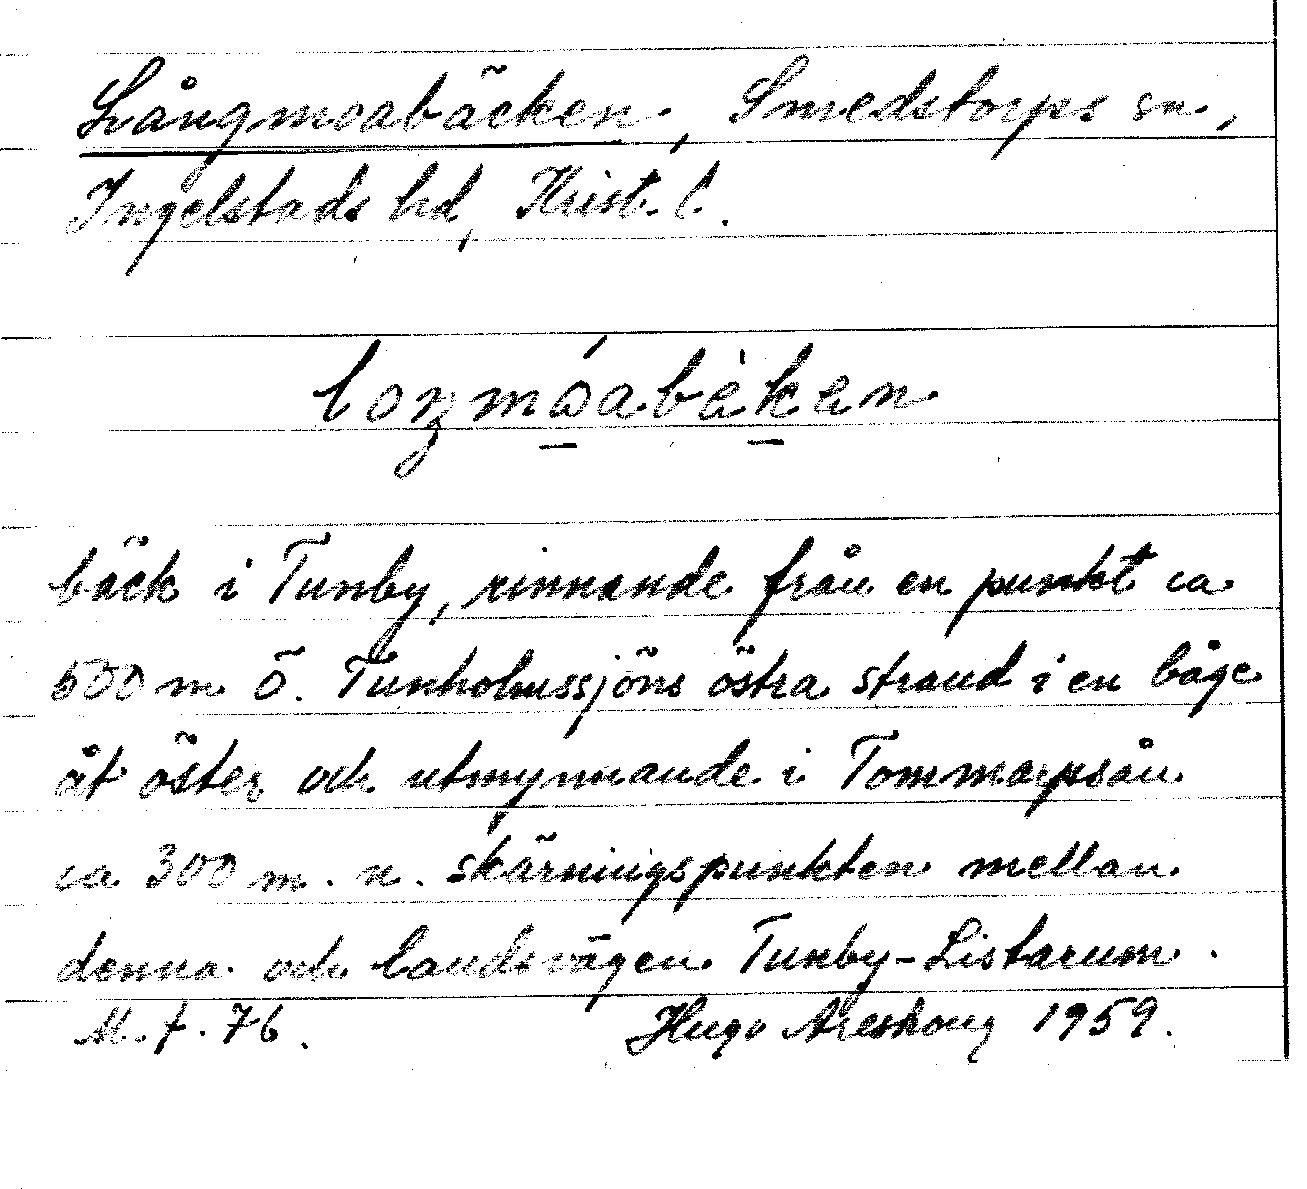 Långmoabäcken, Smedstorps sn,
Ingelstads hd, Krist. l.
loŋmóabèken
bäck i Tunby, rinnande från en punkt ca
500 m ö. Tunholmssjöns östra strand i en båge
åt öster och utmynnande i Tommarpsån
ca 300 m. n. skärningspunkten mellan
denna och landsvägen Tunby-Listarum.
M. f. 76. Hugo Areskoug 1959.